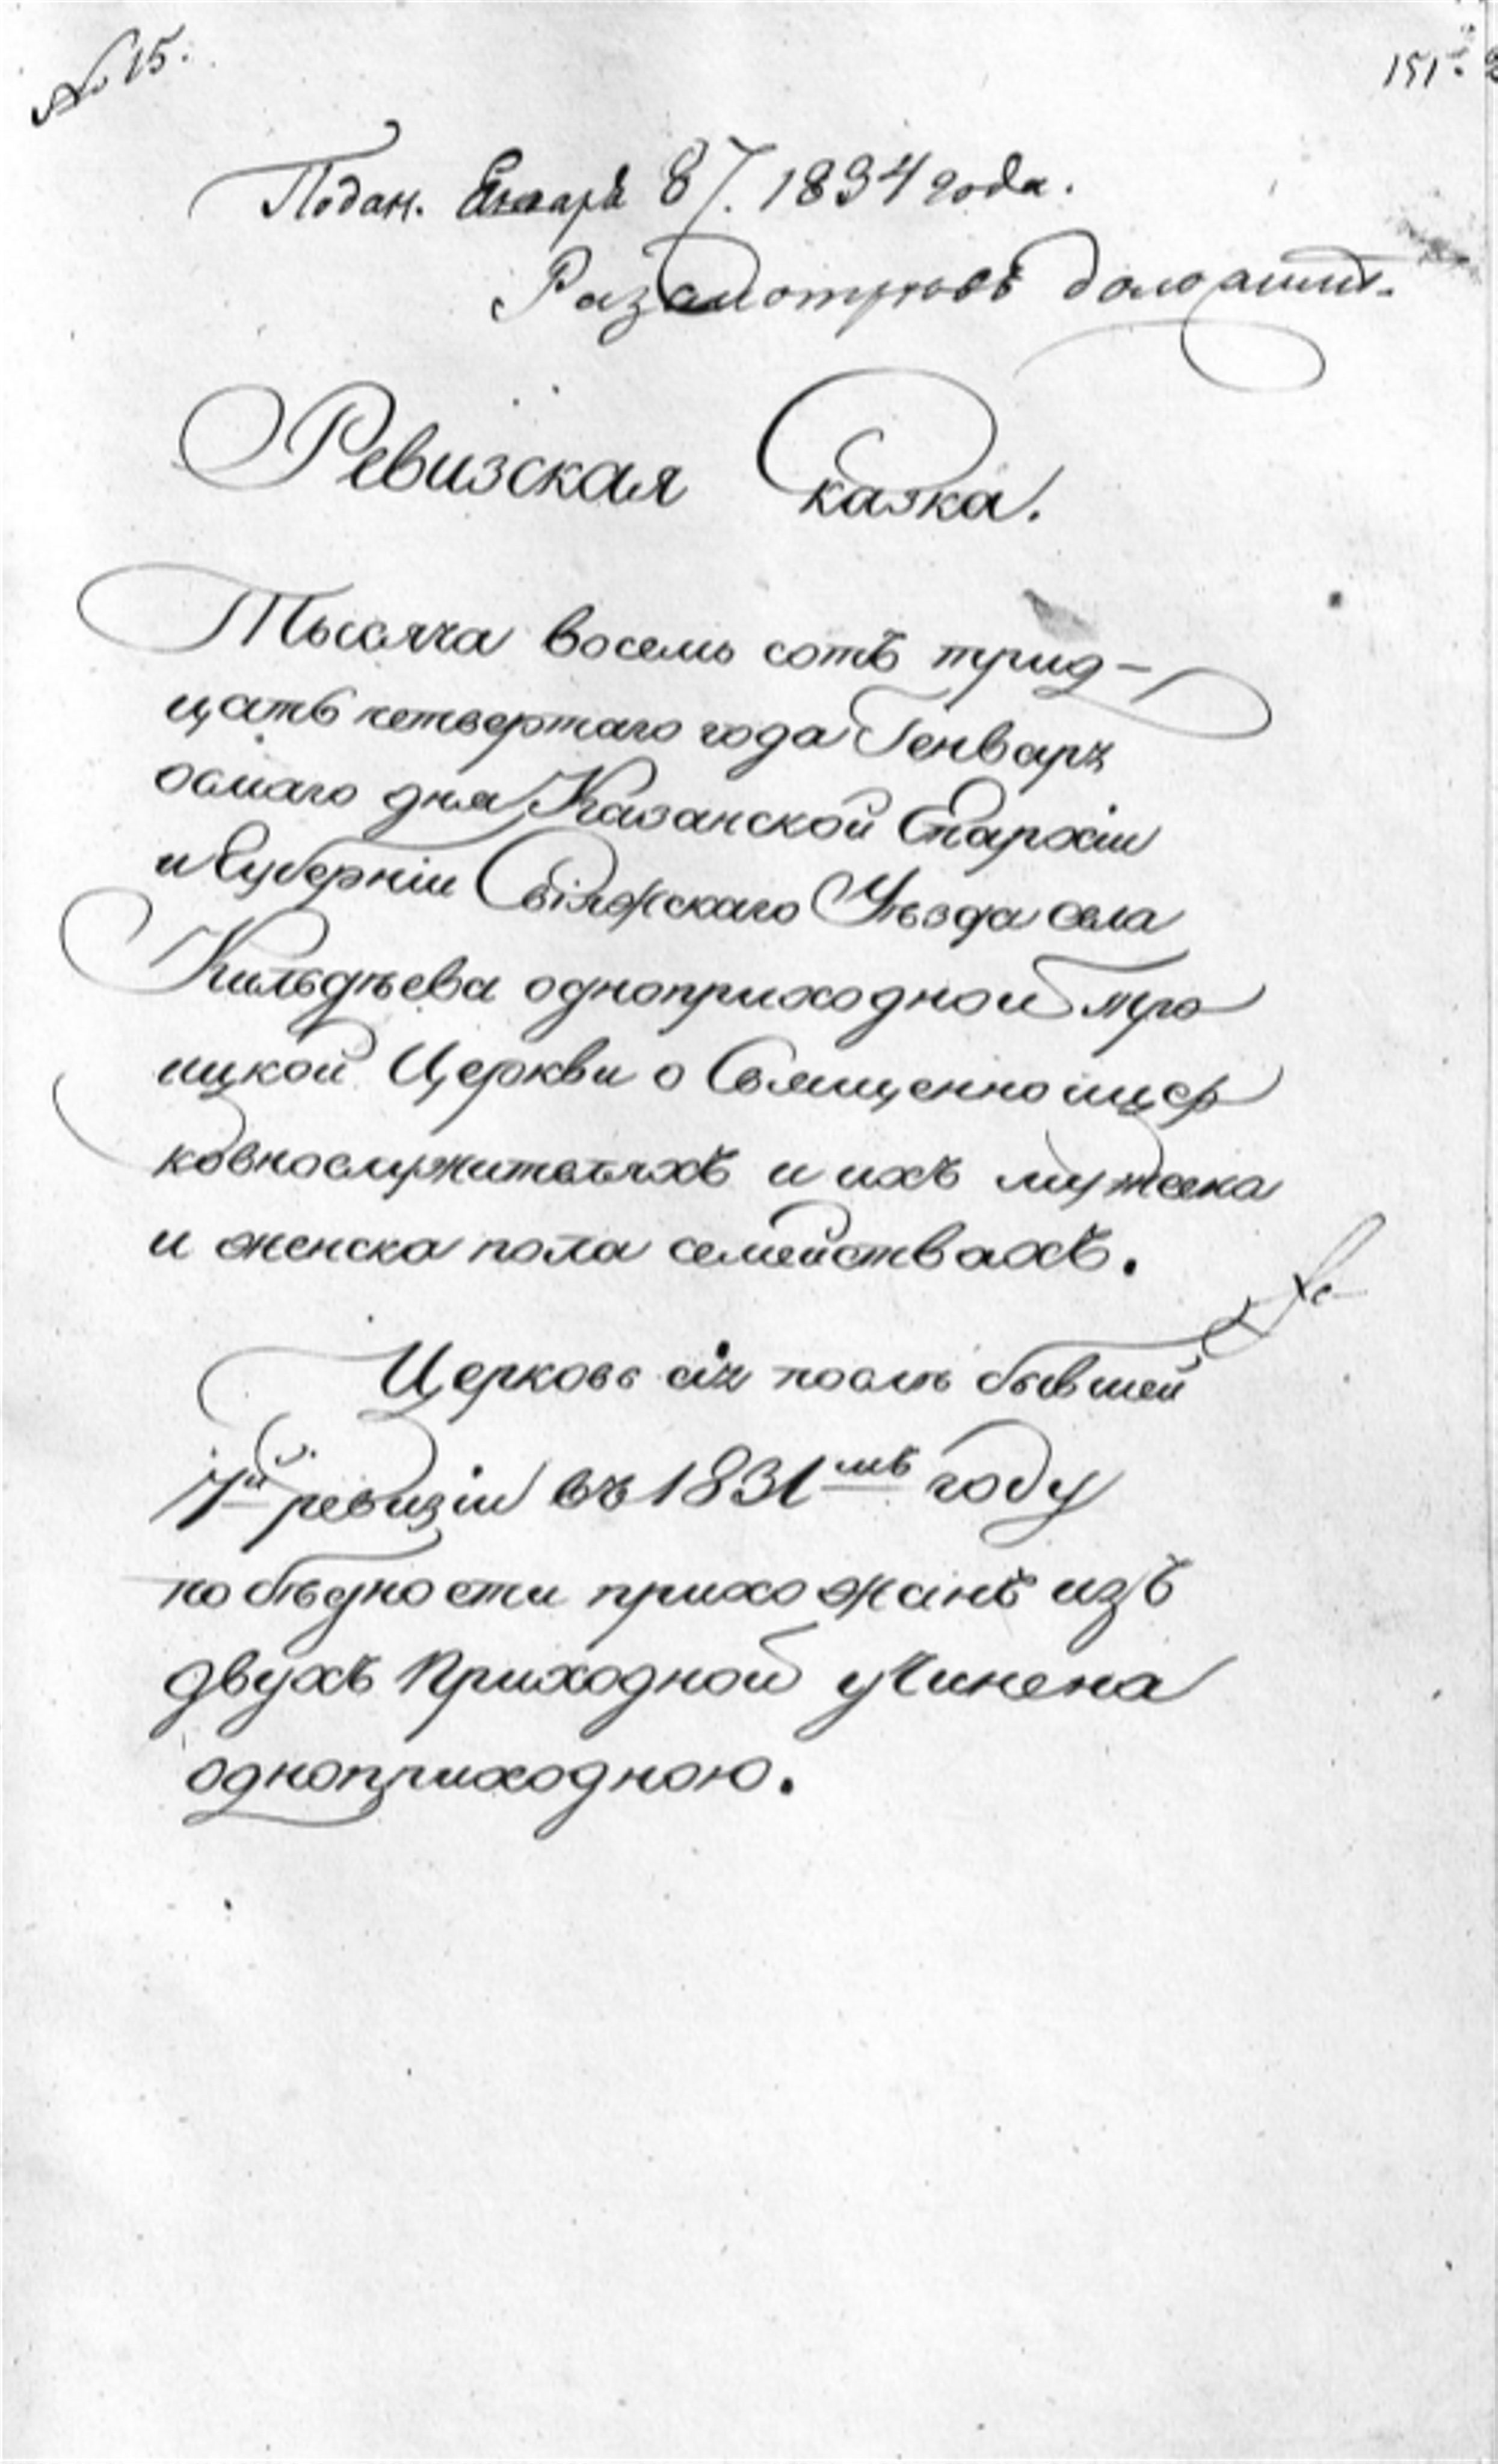 № 15.
151.
Подан. Енваря 8/. 1834 года.
Разсмотревъ доложить.
Ревизская Сказка.
Тысяча восемь сотъ трид-
цать четвертаго года Генваря
осмаго дня Казанской Епархіи
и Губерніи Свіяжскаго Уѣзда села
Кильдѣева одноприходной Тро
ицкой Церкви о Священно и цер
ковнослужителяхъ и ихъ мужеска
и женска пола семействахъ.
Церковь сія послѣ бывшей
7й ревизіи въ 1831мъ году
по бѣдности прихожанъ изъ
двухъ Приходной учинена
одноприходною.